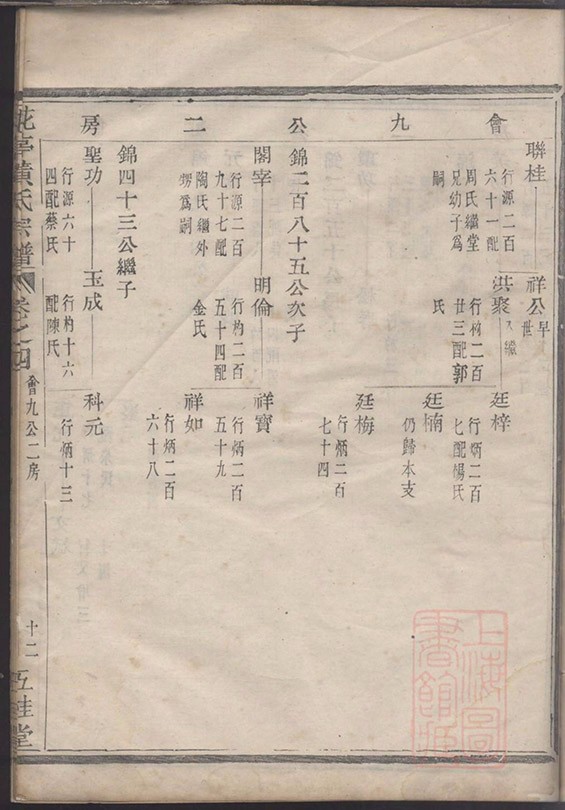 會九公二房
聯桂
行源二百
六十一配
周氏繼堂
兄幼子爲
嗣
祥公早
世
洪聚入繼
行杓二百
廿三配郭
氏
廷梓
行炳二百
七配楊氏
廷楠
仍歸本支
廷梅
行炳二百
七十四
錦二百八十五公次子
閣宰
行源二百
九十七配
陶氏繼外
甥爲嗣
明倫
行杓二百
五十四配
金氏
祥寶
行炳二百
五十九
祥如
行炳二百
六十八
錦四十三公繼子
聖功
行源六十
四配蔡氏
玉成
行杓十六
配陳氏
科元
行炳十三
花亭黃氏宗譜
卷之四
會九公二房
十二
五桂堂
上海圖
書館藏